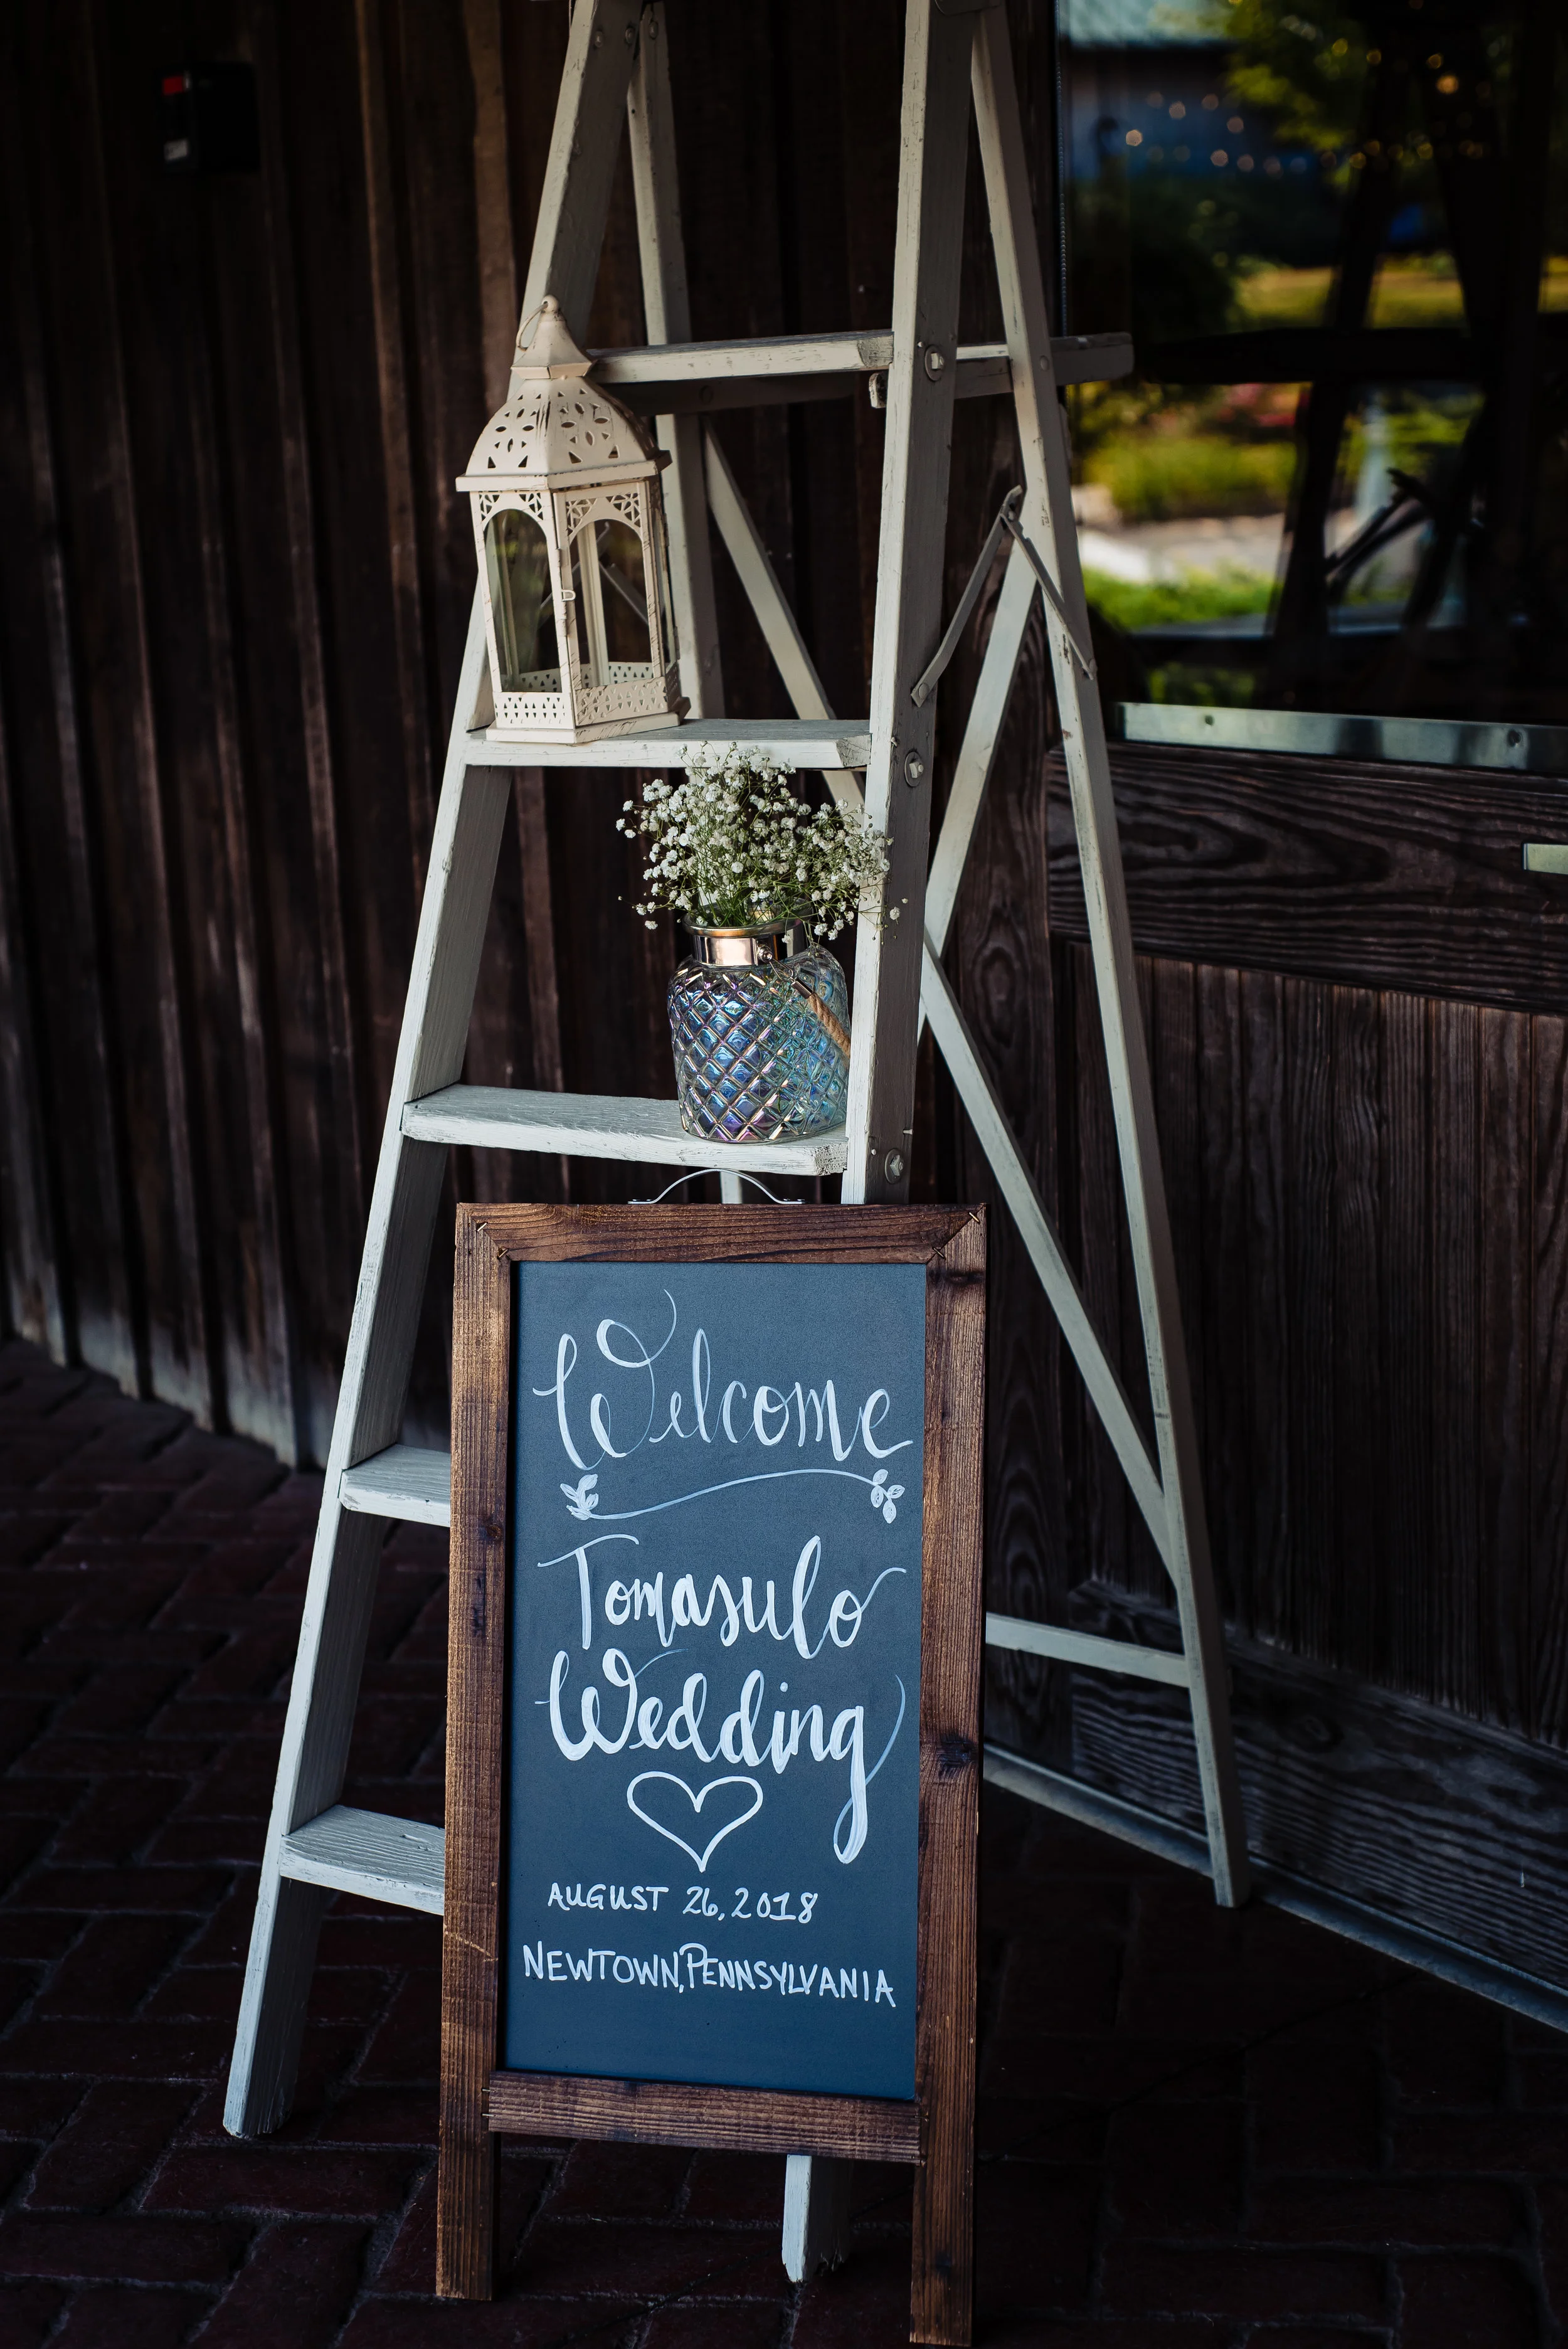 Welcome
Tomasulo
Wedding
AUGUST 26, 2018
NEWTOWN, PENNSYLVANIA